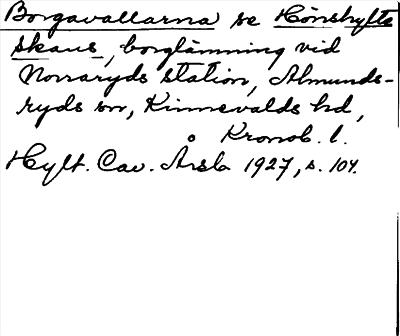 Borgavallarna se Hönshylte
skans, borglämning vid
Norraryds station, Almunds-
ryds sn, Kinnevalds hd,
Kronob. l.
Hylt. Cav. Årsb 1927, s. 104.